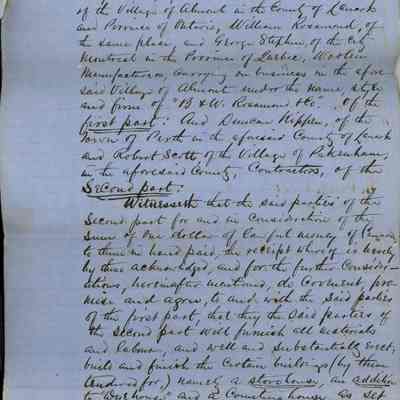 of the Village of Almont in the County of Lanark
and Province of Ontario, William Rosamond, of
the same place, and George Stephen, of the City
Montreal in the Province of Quebec, Woollen
Manufacturers, carrying on business in the afore
said Village of Almont under the name, style
and firm of "B & W. Rosamond & Co." of the
first part: And Duncan Kippen, of the
Town of Perth in the aforesaid County of Lanark
and Robert Scott of the Village of Pakenham,
in the aforesaid County, Contractors, of the
Second part:
Witnesseth that the said parties of the
Second part for and in Consideration of the
Sum of One dollar of lawful money of Canada
to them in hand paid, the receipt whereof is hereby
by them acknowledged, and for the further Consider-
ations, hereinafter mentioned, do Covenant, pro
mise and agree, to and with the said parties
of the first part, that they the said parties of
the Second part will furnish all materials
and labour, and well and substantially erect,
build and finish the certain buildings (by them
tendered for,) namely a storehouse, an addition
to and a Counting house as set